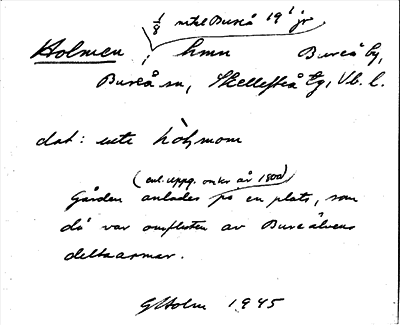 1/8 mtal Bureå 19¹ jr
Holmen, hmn Bureå by,
Bureå sn, Skellefteå tg, Vb. l.
dat: ute hòlmom
(enl. uppg. omkr. år 1800)
Gården anlades på en plats, som
då var omfluten av Bureälvens
deltaarmar.
GHolm 1945